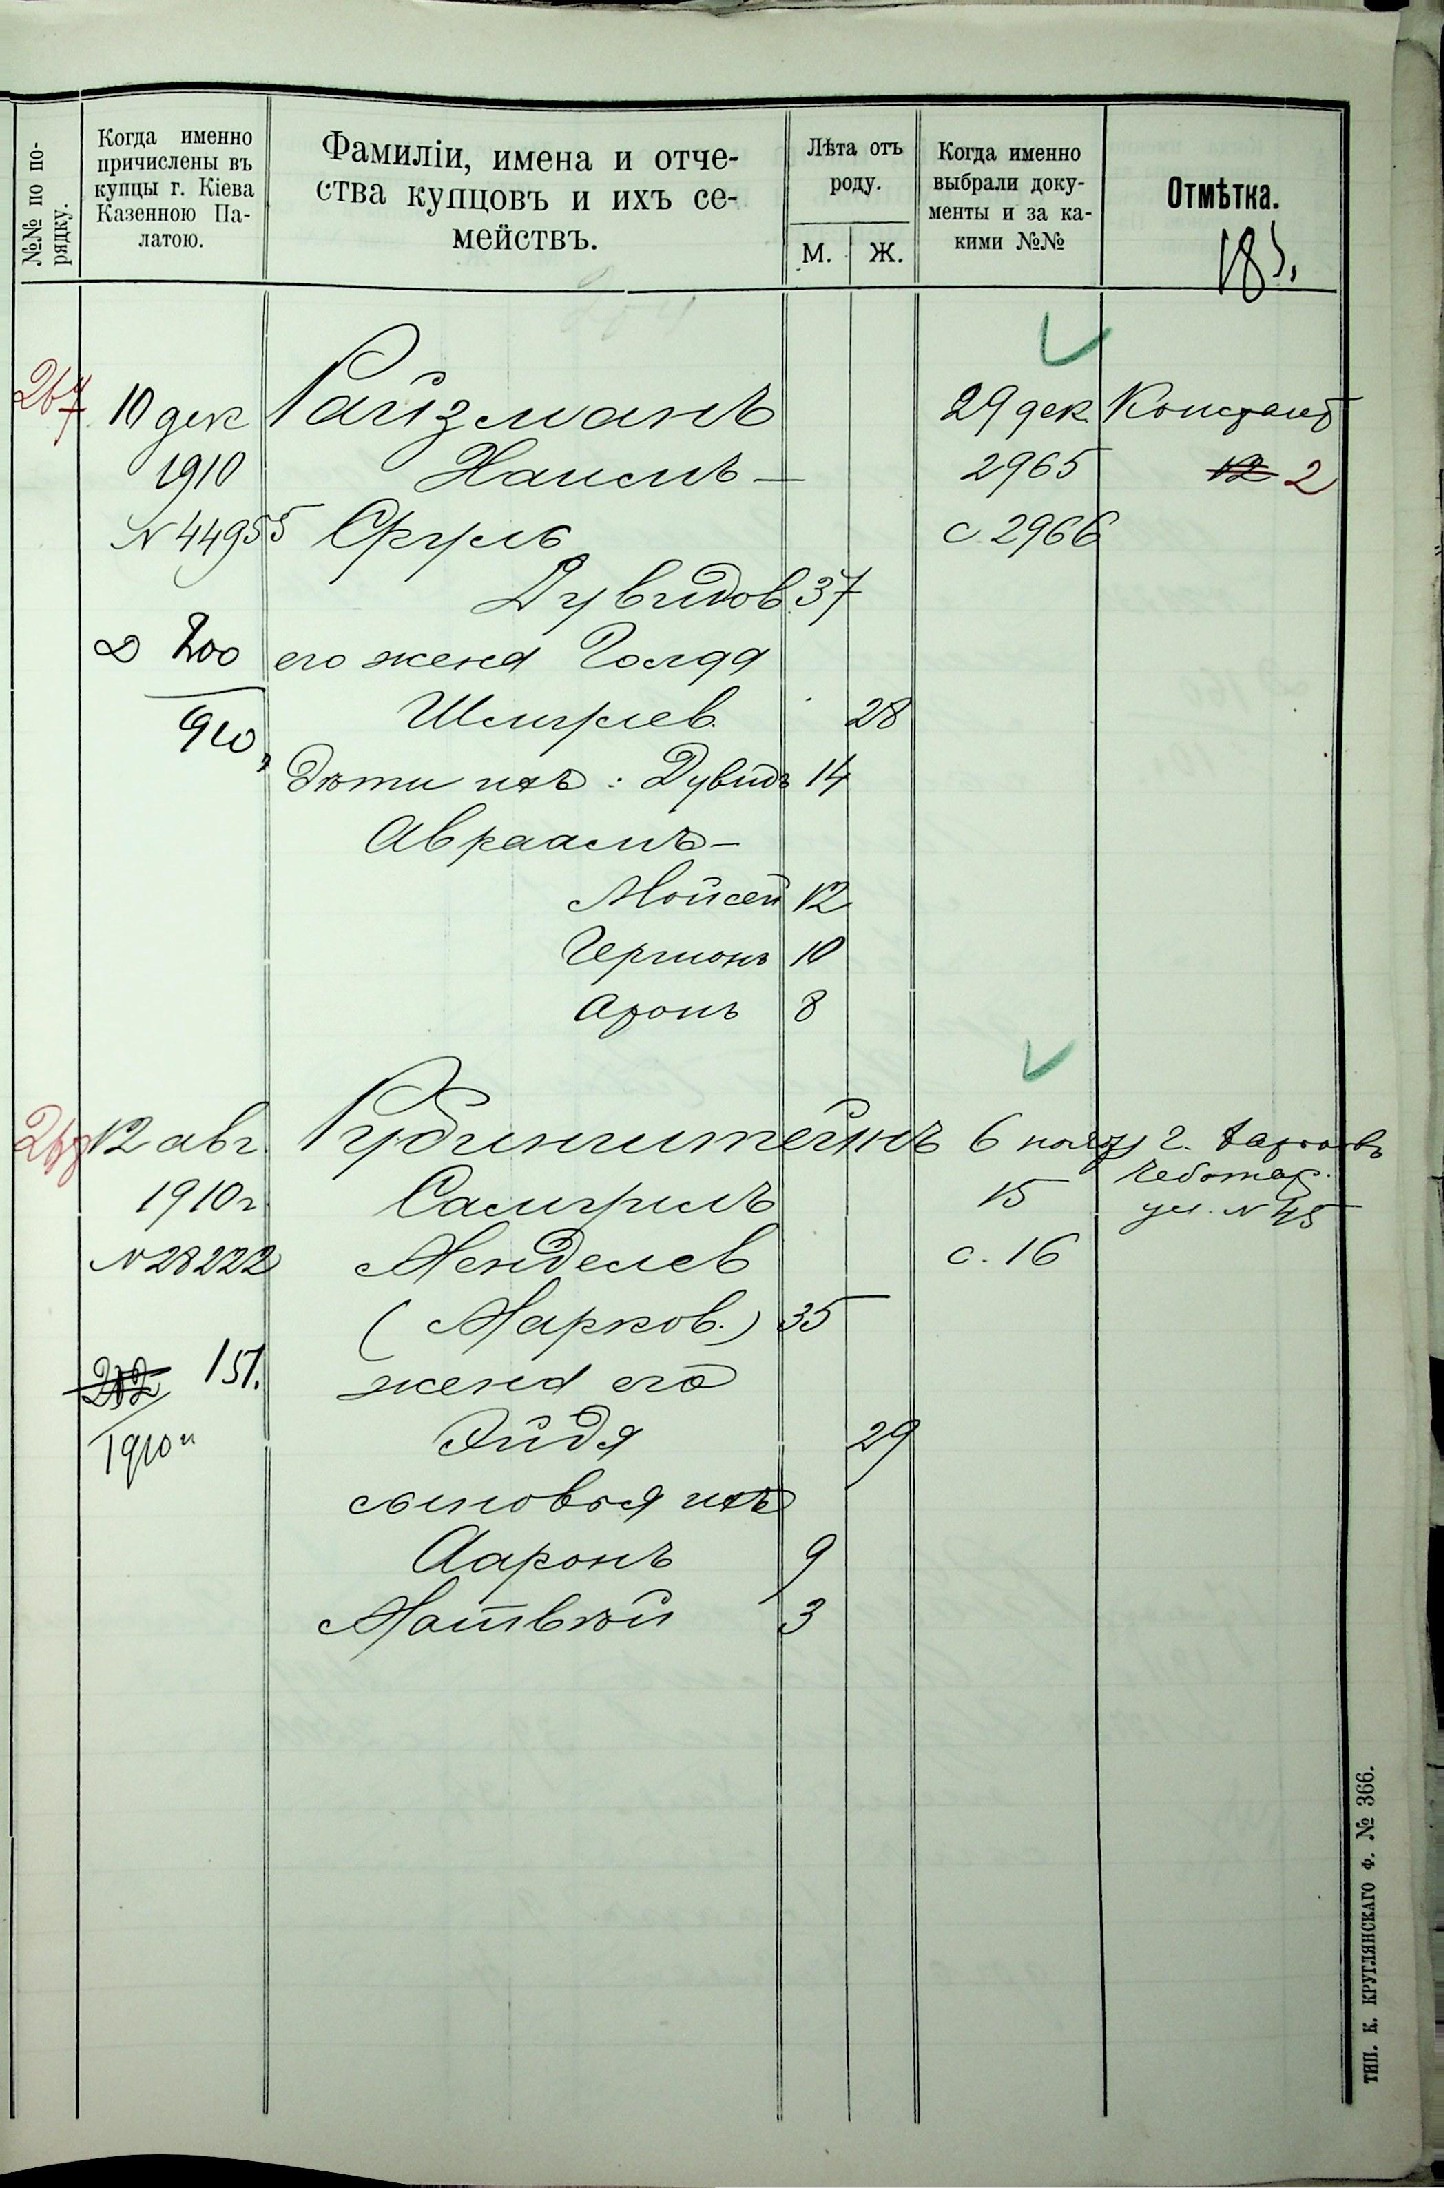 №№ по по-
рядку.
Когда именно
причислены въ
купцы г. Кіева
Казенною Па-
латою.
Фамиліи, имена и отче-
ства купцовъ и ихъ се-
мействъ.
Лѣта отъ
роду.
М.
Ж.
Когда именно
выбрали доку-
менты и за ка-
кими №№
Отмѣтка.
267
10 дек
1910
N 44955
Д 200
910
Райзманъ
Хаимъ-
Сруль
Дувидов 37
его жена Голда
Шмулев. 28
Дѣти ихъ: Дувидъ 14
Авраамъ-
Мойсей 12
Герионъ 10
Аронъ 8
29 дек.
2965
с 2966
Констант
12 2
12 авг.
1910 г.
N 28222
202 151.
1910
Рубинштейнъ
Самуилъ
Менделев
(Марков.) 35
жена его
Эйдя 29
сыновья ихъ
Ааронъ 9
Матвѣй 3
6
15
с. 16
г. Харьковъ
Чеботар.
ул. N 45
ТИП. К. КРУГЛЯНСКАГО Ф. № 366.